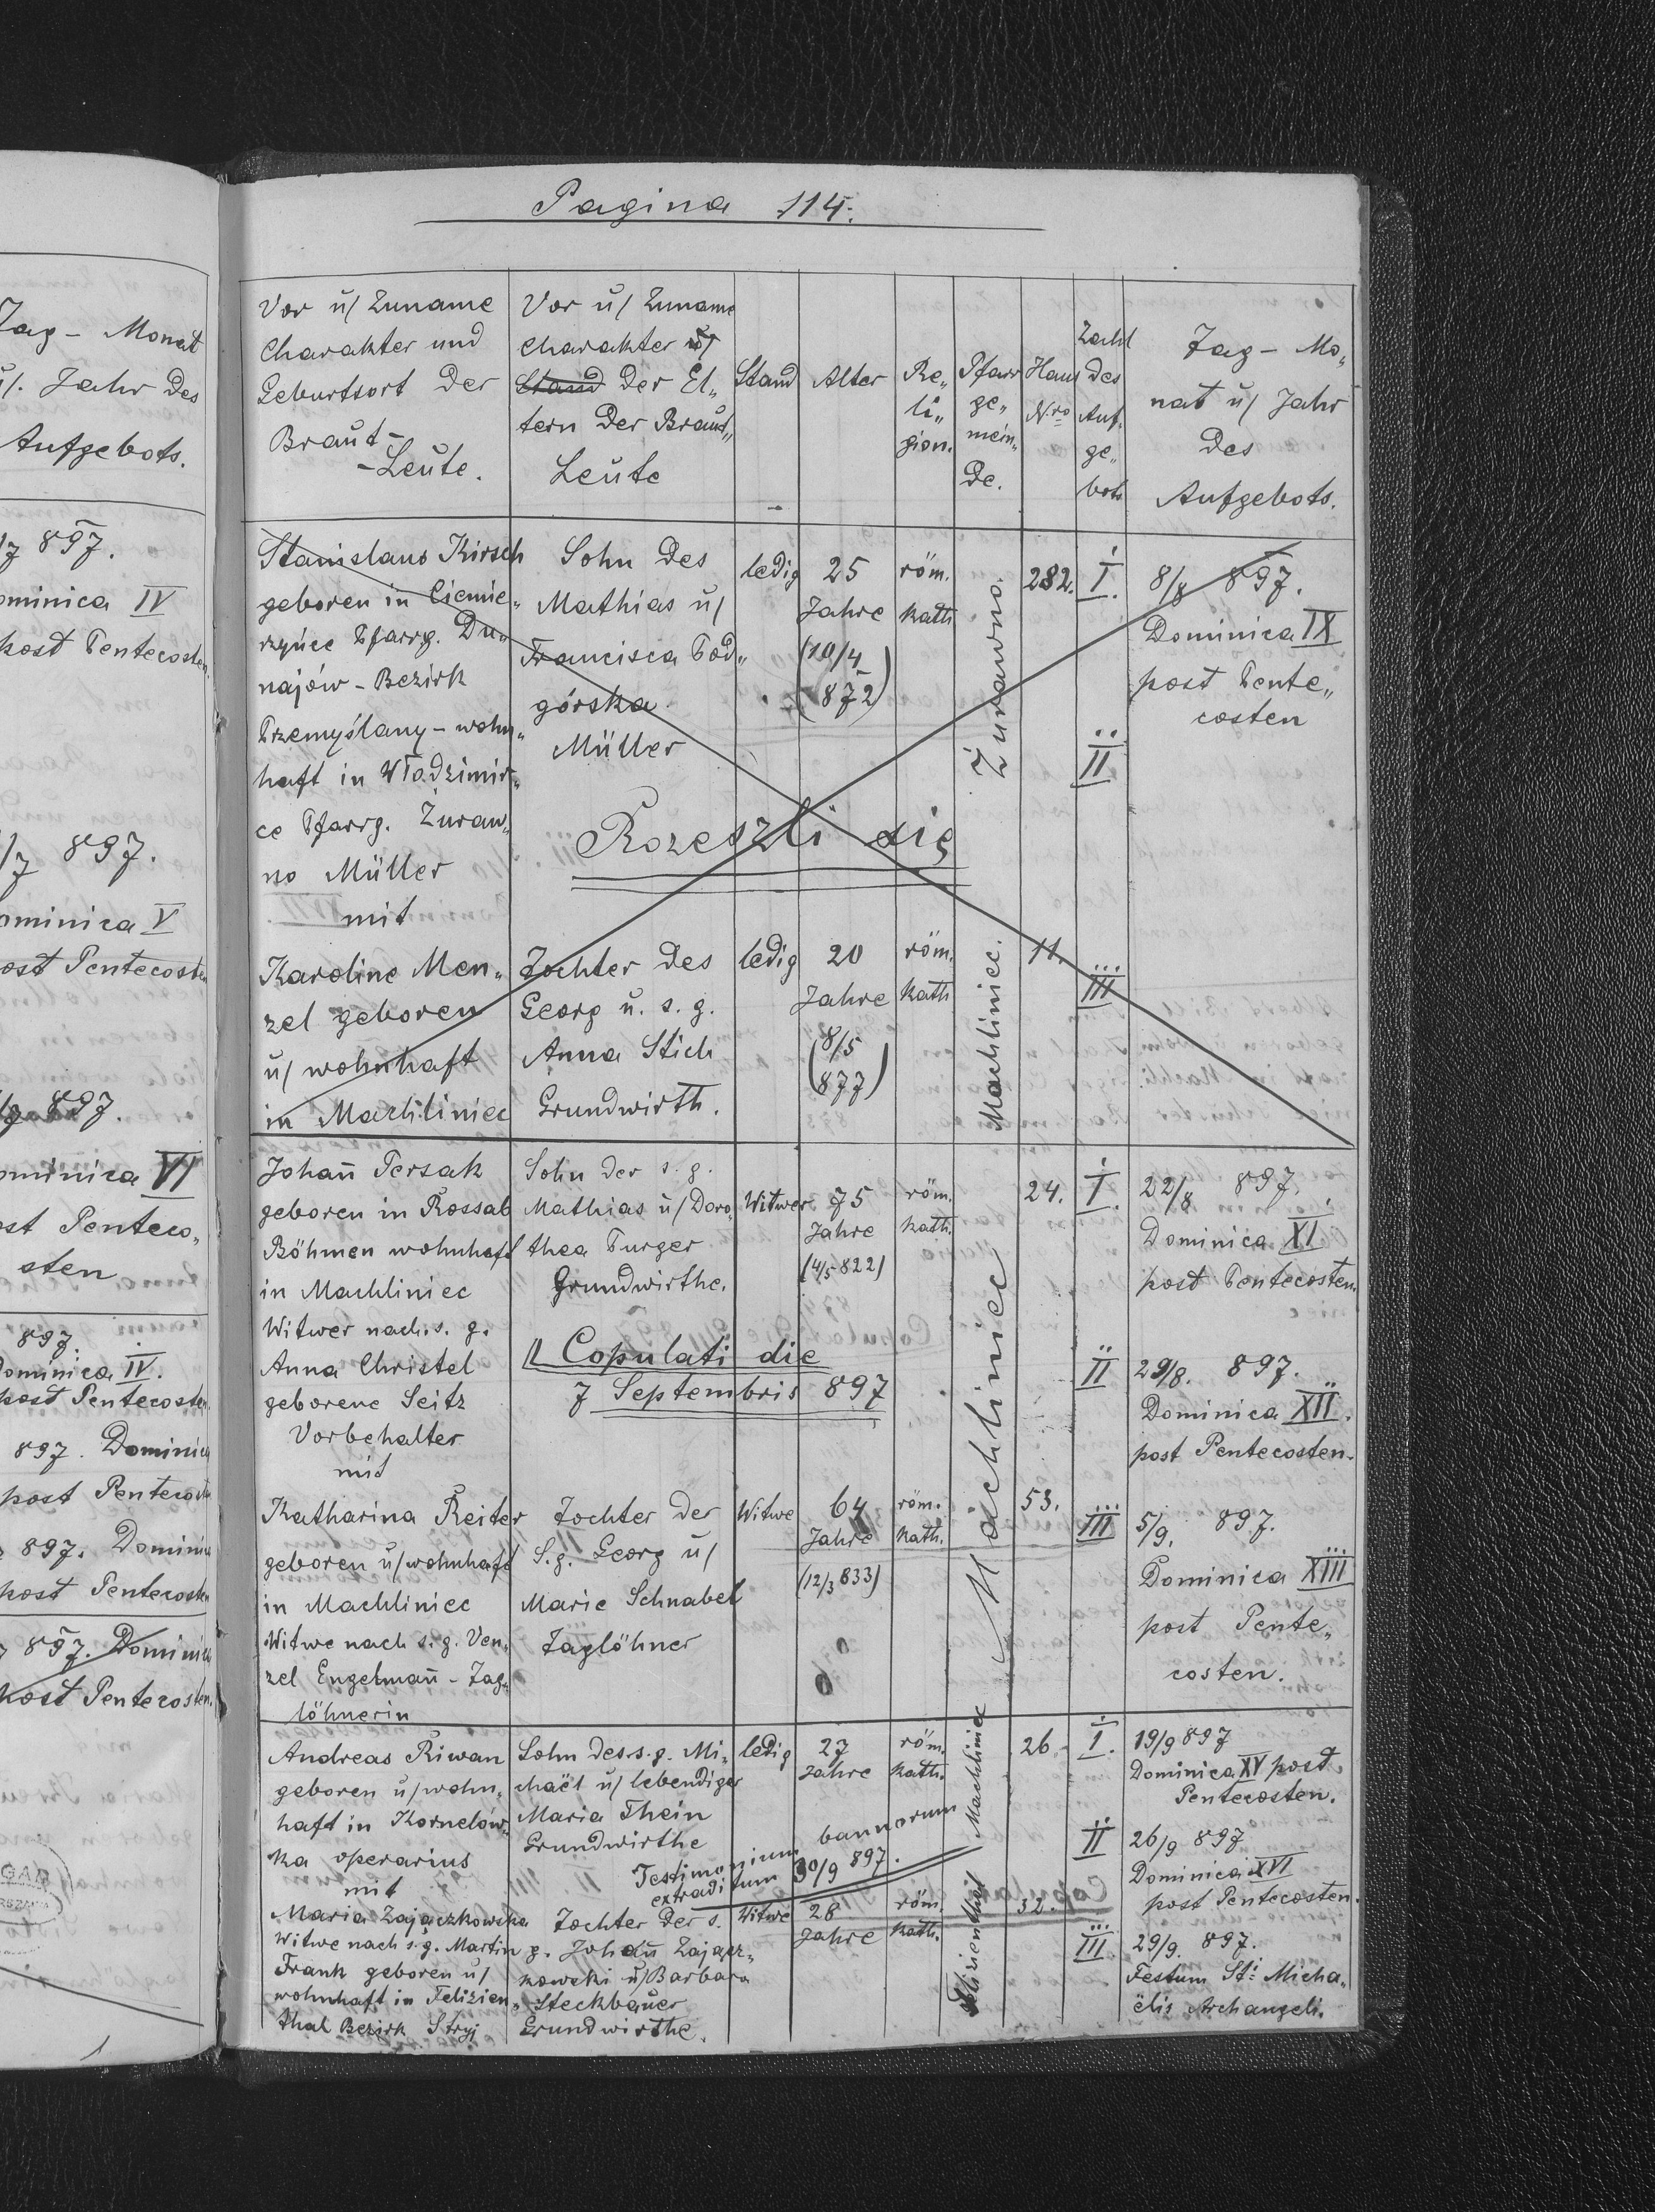 Tag - Monat
u/. Jahr des
Aufgebots.
/7 897.
Dominica IV
post Pentecosten
/7 897.
Dominica V
post Pentecosten
897.
Dominica VI
post Penteco„
sten
897.
Dominica IV.
post Pentecosten
897. Dominica
post Pentecosten
897. Dominica
post Pentecosten
897. Dominica
post Pentecosten.
Pagina 114.
Vor u/ Zuname
Charakter und
Geburtsort der
Braut-
-Leute.
Vor u/ Zuname
Charakter u/
Stand der El„
tern der Braut„
Leute
Stand
Alter
Re„
li„
gion.
Pfarr
ge„
mein„
de.
Haus
Nro
Zahl
des
Auf.
ge„
bots
Tag - Mo„
nat u/ Jahr
des
Aufgebots.
Stanislaus Kirsch
geboren in Ciemie„
rzyńce Pfarrg. Du„
najów - Bezirk
Przemyślany - wohn„
haft in Włodzimir„
ce Pfarrg. Żuraw„
no Müller
mit
Karoline Men„
zel geboren
u/ wohnhaft
in Machliniec
Sohn des
Mathias u/
Francisca Pod„
górska
Müller
Rozeszli się
Tochter des
Georg u. s. g.
Anna Stich
Grundwirth.
ledig
25
Jahre
(10/4
872)
röm.
kath
Żurawno.
282.
ledig
20
Jahre
(8/5
877)
röm.
kath
Machliniec.
11.
I.
II
III
8/8 897.
Dominica IX
post Pente„
costen
Johan̄ Persak
geboren in Rossab
Böhmen wohnhaft
in Machliniec
Witwer nach s. g.
Anna Christel
geborene Seitz
Vorbehalter
mit
Katharina Reiter
geboren u/ wohnhaft
in Machliniec
Witwe nach s. g. Ven„
zel Engelman̄ - Tag„
löhnerin
Sohn der s. g.
Mathias u/ Doro„
thea Purger
Grundwirthe.
Copulati die
7 Septembris 897
Tochter der
S. g. Georg u/
Marie Schnabel
Taglöhner
Witwer
75
Jahre
(4/5 822)
röm.
kath.
24.
Witwe
64
Jahre
(12/3 833)
röm.
kath.
53.
Machliniec
I.
22/8 897.
Dominica XI
post Pentecosten.
II
29/8. 897.
Dominica XII.
post Pentecosten.
III
5/9. 897.
Dominica XIII
post Pente„
costen.
Andreas Riwan
geboren u/ wohn„
haft in Kornelów„
ka operarius
mit
Maria Zajączkowska
Witwe nach s. g. Martin
Frank geboren u/
wohnhaft in Felizien„
thal Bezirk Stryj
Sohn des s. g. Mi„
chaël u/ lebendiger
Maria Thein
Grundwirthe
Testimonium bannorum
extraditum 30/9 897.
Tochter der s.
g. Johan̄ Zającz„
kowski u/ Barbara
Steckbauer
Grundwirthe.
ledig
27
Jahre
röm.
kath.
Machliniec
26.
Witwe
28
Jahre
röm.
kath.
Felizienthal
32.
I.
19/9 897
Dominica XV post
Pentecosten.
II
26/9 897
Dominica XVI
post Pentecosten.
III.
29/9. 897.
Festum Sti Micha„
ëlis Archangeli.